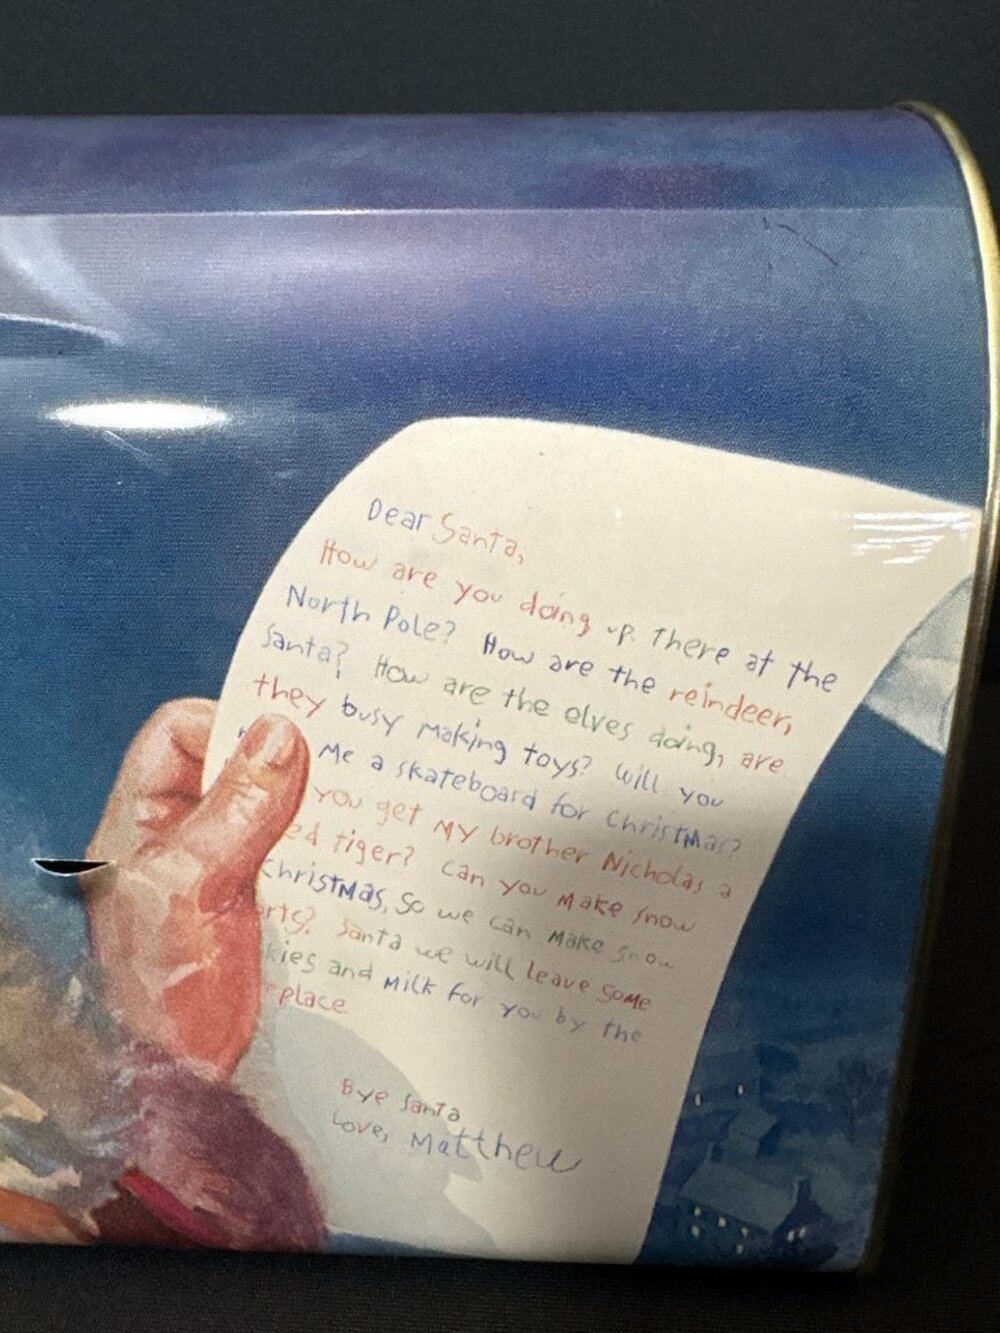 Dear Santa,
How are you doing up There at the
North Pole? How are the reindeer,
Santa? How are the elves doing, are
they busy Making toys? Will you
Me a skateboard for ChrisTMas?
you get MY brother Nicholas a
ed Tiger? Can you Make snow
ChrisTMas, So we can Make snow
orts? Santa we will leave some
kies and Milk for you by the
eplace
Bye Santa
Love, Matthew